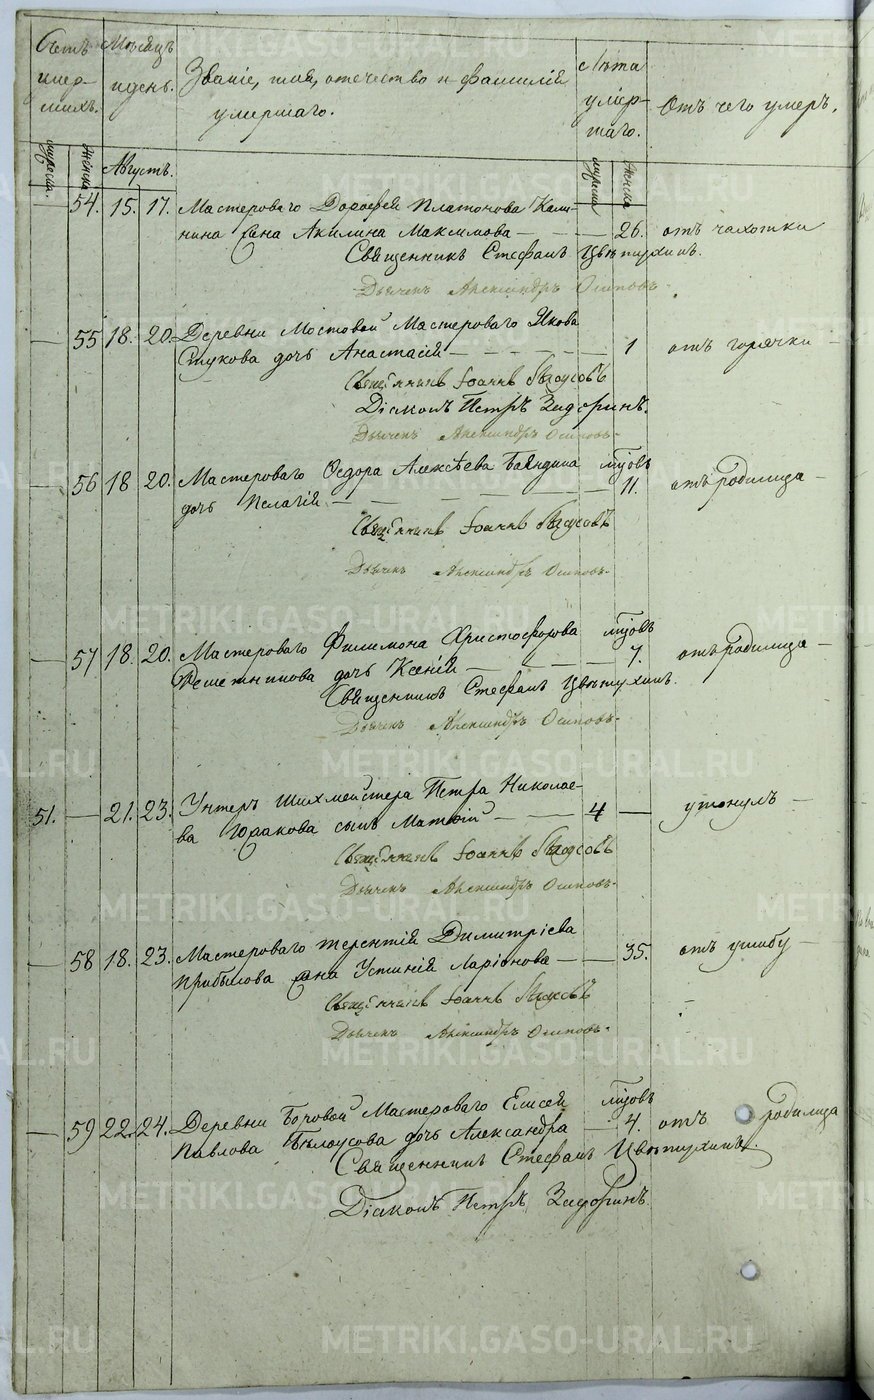 Счетъ умер-
шихъ.
Мѣсяцъ
и день.
Званіе, имя, отечество и фамилія
умершаго.
Лѣта
умер-
шаго.
Отъ чего умеръ.
мужеска.
женска
Августъ.
мужеска
женска
54. 15. 17. Мастероваго Дорофея Платонова Кали-
нина жена Акилина Максимова — 26. отъ чахотки
Священникъ Стефанъ Цвѣтухинъ.
Дьячекъ Александръ Осиповъ.
55 18. 20. Деревни Мостовой Мастероваго Якова
Стукова дочь Анастасія — 1 отъ горячки —
Священникъ Іоаннъ
Діаконъ Петръ Задоринъ.
Дьячекъ Александръ Осиповъ.
56 18 20. Мастероваго Ѳедора Алексѣева мцовъ
дочь Пелагія — 11. отъ родимца —
Священникъ Іоаннъ
Дьячекъ Александръ Осиповъ.
57 18. 20. Мастероваго Филимона Христофорова мцовъ
Решетникова дочь Ксенія — 7. отъ родимца —
Священникъ Стефанъ Цвѣтухинъ.
Дьячекъ Александръ Осиповъ.
51. — 21. 23. Унтеръ Шихмейстера Петра Николае-
ва сынъ Матвій — 4 — утонулъ —
Священникъ Іоаннъ
Дьячекъ Александръ Осиповъ.
58 18. 23. Мастероваго Терентія Димитріева
Прибылова жена Устинія Ларіонова — 35. отъ ушибу —
Священникъ Іоаннъ
Дьячекъ Александръ Осиповъ.
59 22. 24. Деревни Мастероваго Елисея мцовъ
Павлова Бѣлоусова дочь Александра — 4. отъ родимца
Священникъ Стефанъ Цвѣтухинъ.
Діаконъ Петръ Задоринъ.
METRIKI.GASO-URAL.RU